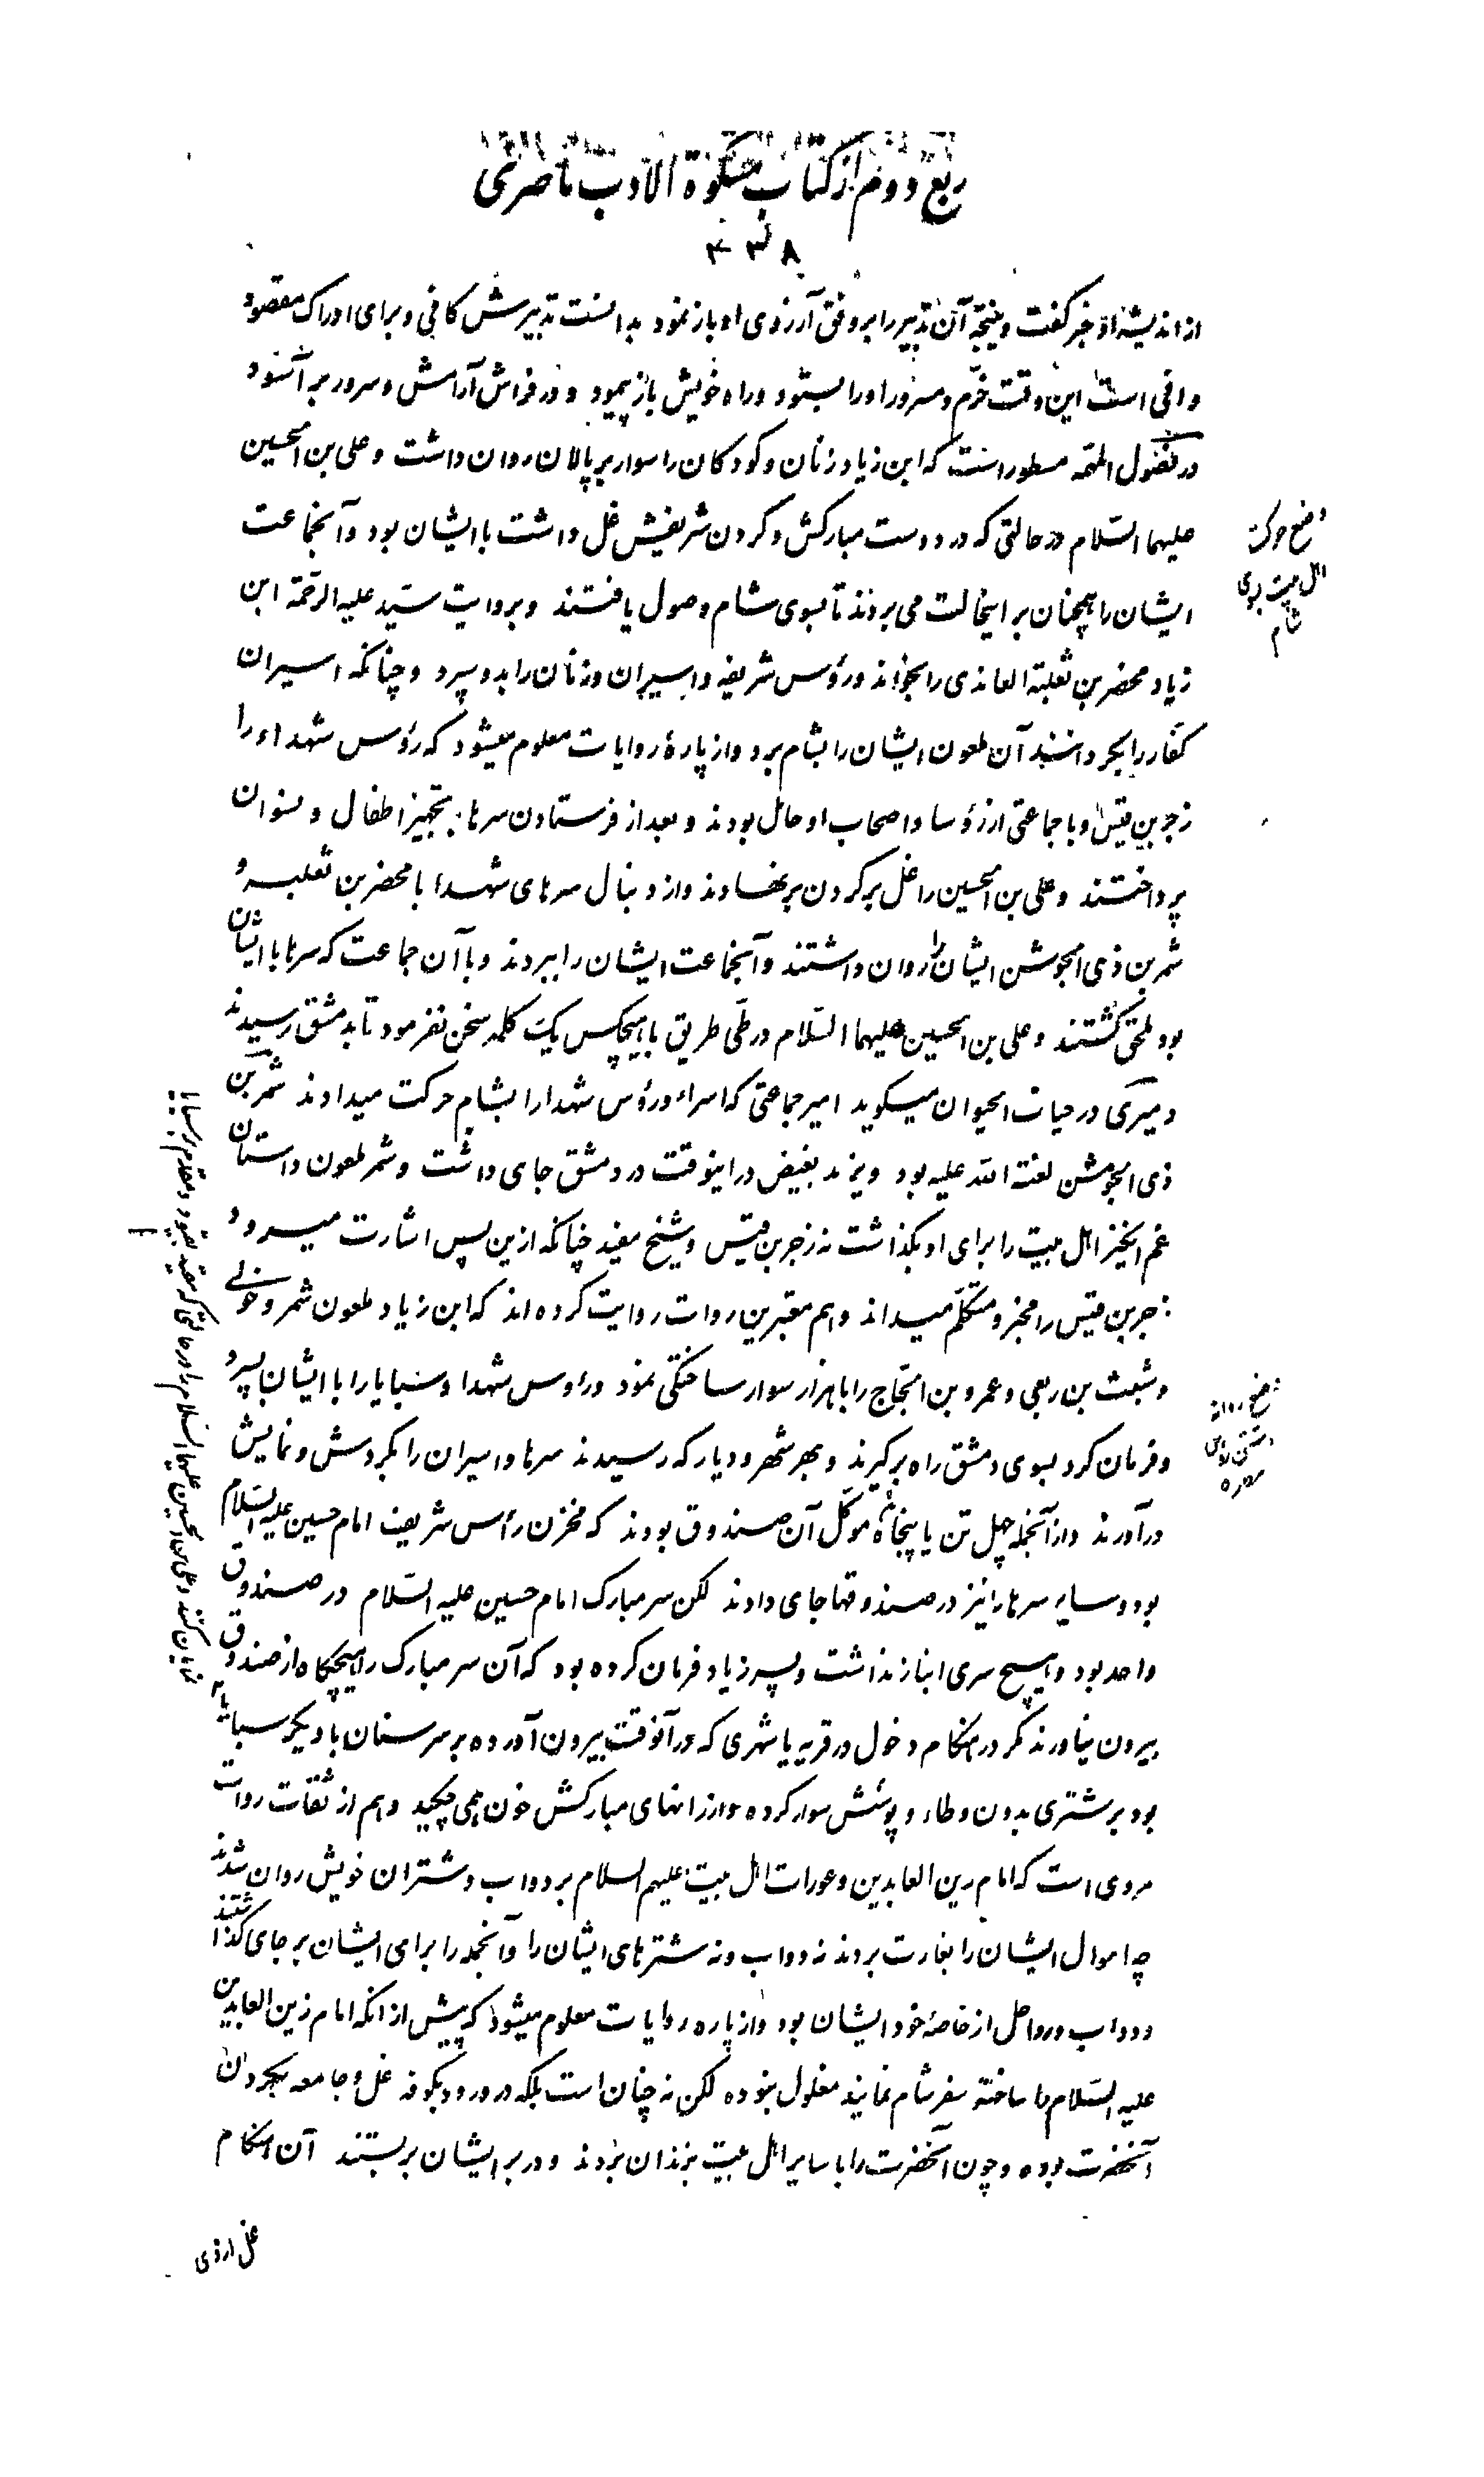 ربع دوم از کتاب مشکوة الادب ناصری
۴۳۸
از اندیشه او خبر گفت و نتیجه آن تدبیر را بروفق آرزوی او باز نمود بدانست تدبیرش کافی و برای ادراک مقصود
وافی است این وقت خرّم و مسرور او را بستود و راه خویش باز پیمود و در فراش آرامش و سرور بر آسنود
در فصول المهمه مسطور است که ابن زیاد زنان و کودکان را سوار بر پالان روان داشت و علی بن الحسین
علیهما السّلام در حالتی که در دو دست مبارکش و گردن شریفش غل داشت با ایشان بود و آنجماعت
ایشان را همچنان بر اینحالت می بردند تا بسوی شام وصول یافتند و بروایت سیّد علیه الرّحمة ابن
زیاد محضر بن ثعلبة العائذی را بخواند و رؤس شریفه و اسیران و زنان را بدو سپرد و چنانکه اسیران
کفار را بحر دانند آن ملعون ایشان را بشام برد و از پارهٔ روایات معلوم میشود که رؤس شهداء را
زجر بن قیس و با جماعتی از رؤسا و اصحاب او حامل بودند و بعد از فرستادن سرها بتجهیز اطفال و نسوان
پرداختند و علی بن الحسین را غل بر گردن برنهادند و از دنبال سرهای شهدا با محضر بن ثعلبه و
شمر بن ذی الجوشن ایشان را روان داشتند و آنجماعت ایشان را ببردند و با آن جماعت که سرها با ایشان
بود ملحق گشتند و علی بن الحسین علیهما السّلام در طی طریق با هیچکس یک کلمه سخن نفرمود تا بدمشق رسیدند
دمیری در حیات الحیوان میگوید امیر جماعتی که اسراء و رؤس شهدا را بشام حرکت میدادند شمر بن
ذی الجوشن لعنة الله علیه بود و یزید بغیض در اینوقت در دمشق جای داشت و شمر ملعون داستان
غم انگیز اهل بیت را برای او بگذاشت نه زجر بن قیس و شیخ مفید چنانکه ازین پس اشارت میرود
زجر بن قیس را مخبر و متکلّم میداند و هم معتبرین روات روایت کرده اند که ابن زیاد ملعون شمر و خولی
و شبث بن ربعی و عمرو بن الحجاج را با هزار سوار ساختگی نمود و رؤس شهدا و سبایا را با ایشان سپرد
و فرمان کرد بسوی دمشق راه برگیرند و بهر شهر و دیار که رسیدند سرها و اسیران را بگردش و نمایش
درآورند و از آنجمله چهل تن یا پنجاه موکل آن صندوق بودند که مخزن رأس شریف امام حسین علیه السّلام
بود و سایر سرها را نیز در صندوقها جای دادند لکن سر مبارک امام حسین علیه السّلام در صندوق
واحد بود و هیچ سری انباز نداشت و پسر زیاد فرمان کرده بود که آن سر مبارک را هیچگاه از صندوق
بیرون نیاورند مگر در هنگام دخول در قریه یا شهری که در آنوقت بیرون آورده بر سر سنان با دیگر سبایا
بود بر شتری بدون وطاء و پوشش سوار کرده و از رانهای مبارکش خون همی چکید و هم از ثقات روات
مروی است که امام زین العابدین و عورات اهل بیت علیهم السلام بر دواب و شتران خویش روان شدند
چه اموال ایشان را بغارت بردند نه دواب و نه شترهای ایشان را و آنجمله را برای ایشان بر جای گذاشتند
و دواب و رواحل از خاصهٔ خود ایشان بود و از پاره روایات معلوم میشود که پیش از انکه امام زین العابدین
علیه السّلام را ساخته سفر شام نمایند مغلول نبوده لکن نه چنان است بلکه در ورود بکوفه غل و جامعه بگردن
آنحضرت بوده و چون آنحضرت را با سایر اهل بیت بزندان بردند و در بر ایشان بربستند آن هنگام
غل از وی
وضع حرکت
اهل بیت بسوی
شام
وضع روانه
داشتن رؤس
نمایان کنند و علی بن الحسین علیهما السّلام را در حالتی که مقید بقیود و مقدم بر سبایا